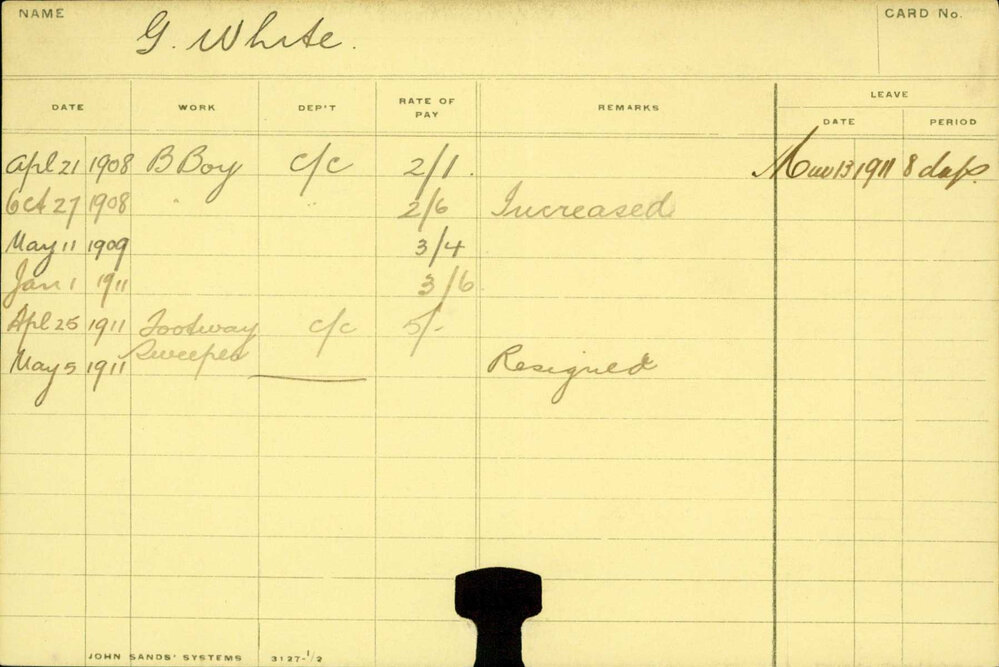 NAME G. White. CARD No.
LEAVE
DATE WORK DEP'T RATE OF PAY REMARKS DATE PERIOD
Apl 21 1908 B Boy c/c 2/1. 13 1911 8 days.
Oct 27 1908 " " 2/6 Increased
May 11 1909 3/4
Jan 1 1911 3/6
Apl 25 1911 Footway c/c 5/-
Sweeper
May 5 1911 Resigned
JOHN SANDS' SYSTEMS 3127-1/2